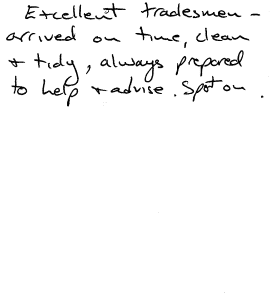 Excellent tradesmen -
arrived on time, clean
& tidy, always prepared
to help & advise. Spot on.